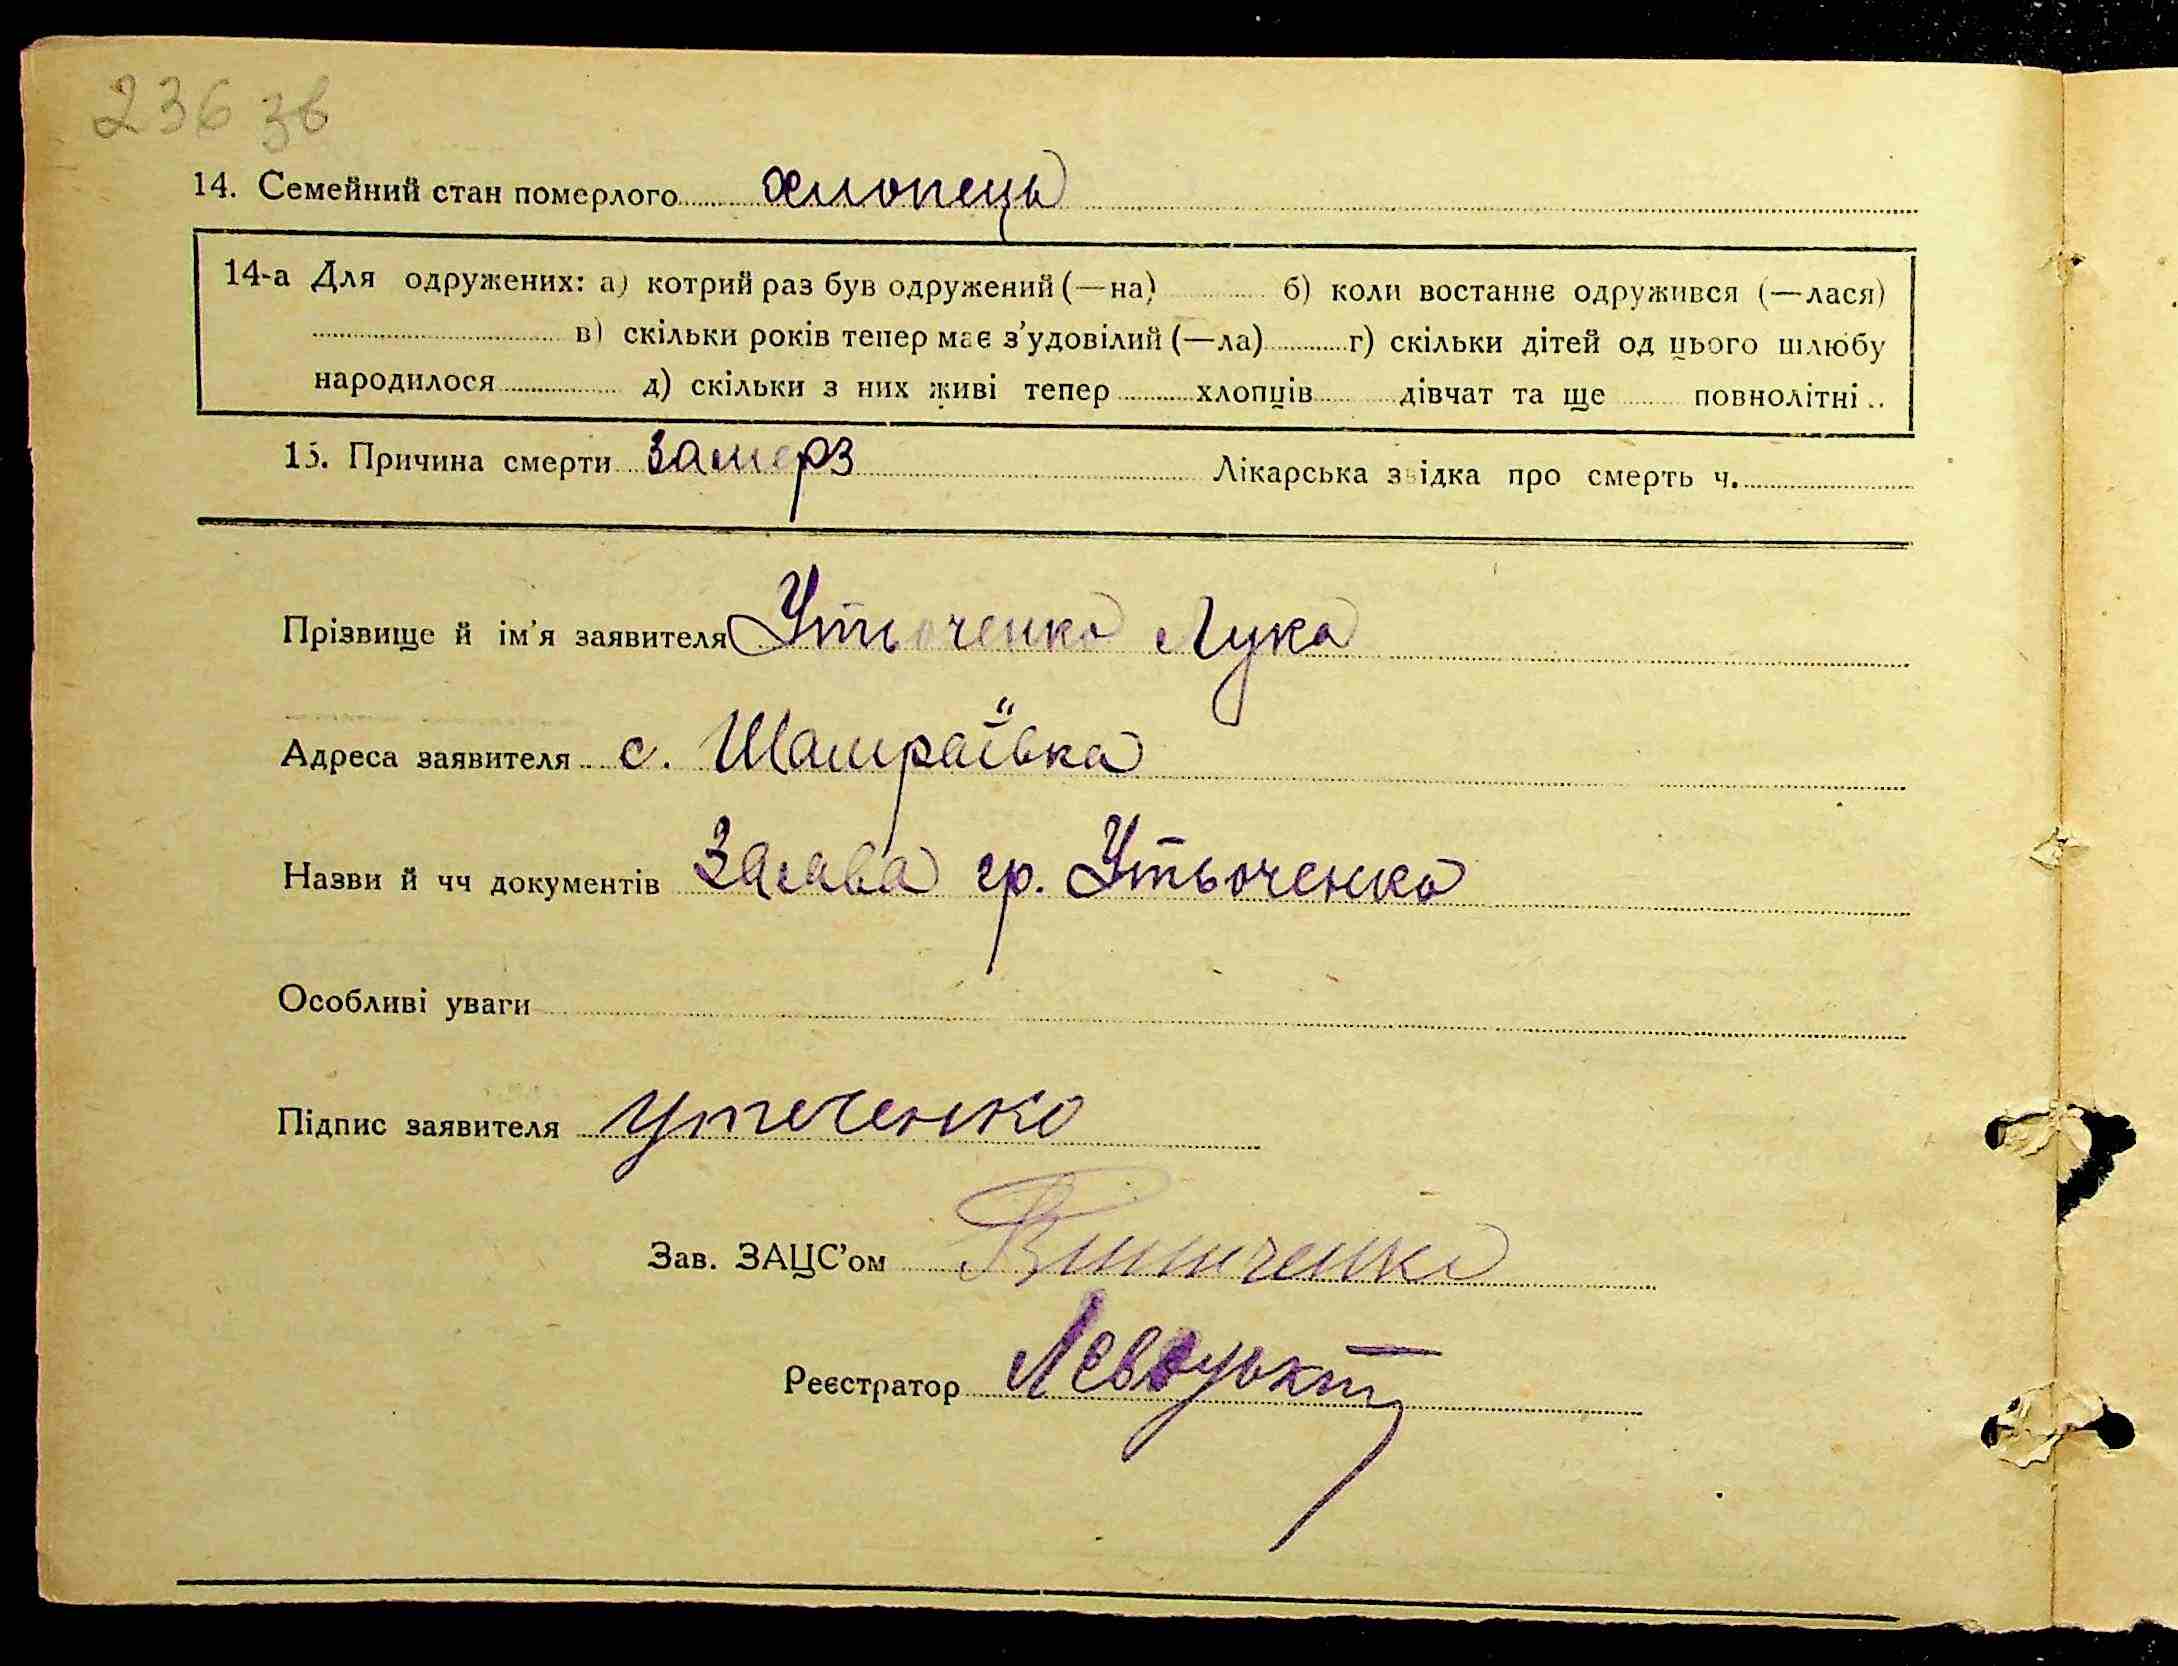 236 зв
14. Семейний стан померлого хлопець
14-а Для одружених: а) котрий раз був одружений (—на) б) коли востаннє одружився (—лася)
в) скільки років тепер має з’удовілий (—ла) г) скільки дітей од цього шлюбу
народилося д) скільки з них живі тепер хлопців дівчат та ще повнолітні
15. Причина смерти замерз Лікарська звідка про смерть ч.
Прізвище й ім’я заявителя Утьоченко Лука
Адреса заявителя с. Шамраївка
Назви й чч документів Заява гр. Утьоченко
Особливі уваги
Підпис заявителя Утеченко
Зав. ЗАЦС’ом Винниченко
Реєстратор